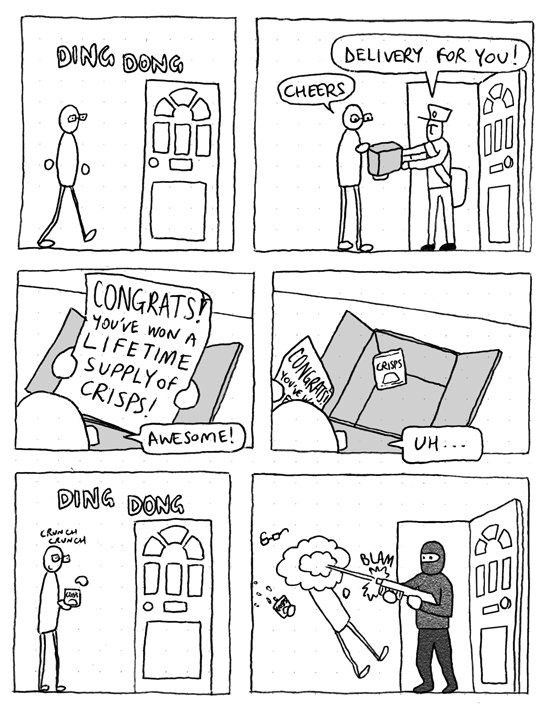 DING DONG
DELIVERY FOR YOU!
CHEERS
CONGRATS!
YOU'VE WON A
LIFETIME
SUPPLY OF
CRISPS!
AWESOME!
CONGRATS!
YOU'VE W
CRISPS
UH...
DING DONG
CRUNCH
CRUNCH
BLAM